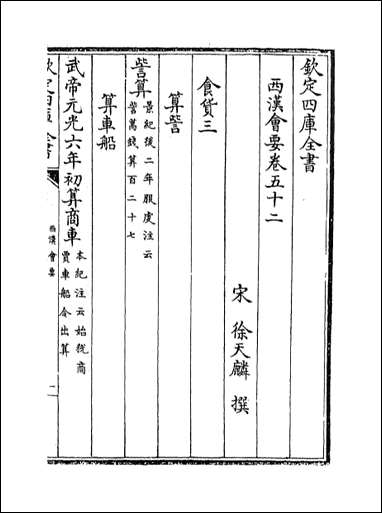 欽定四庫全書
西漢會要卷五十二
宋 徐天麟 撰
食貨三
算訾
訾算景紀後二年服虔注云訾萬錢算百二十七
算車船
武帝元光六年初算商車本紀注云始稅商賈車船令出算
西漢會要
一